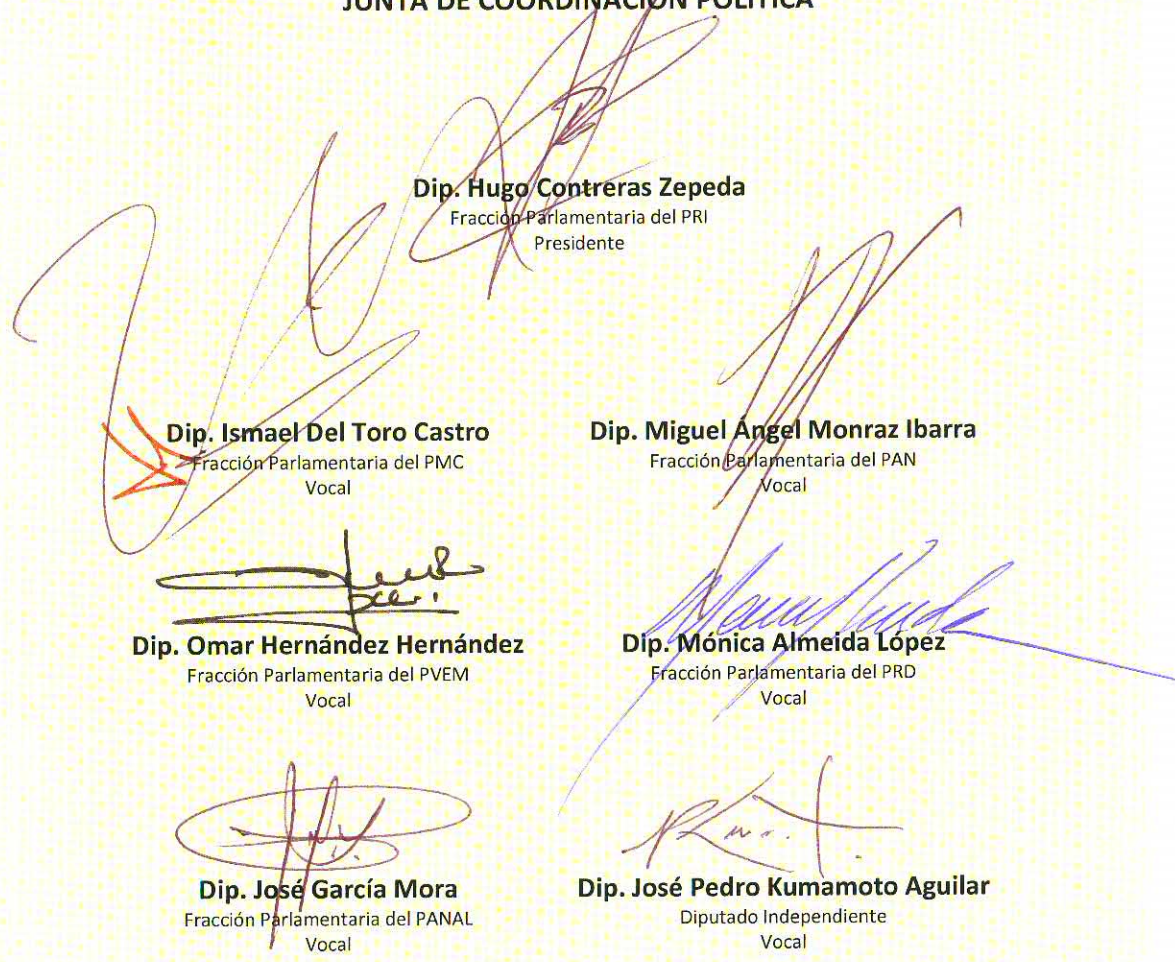 JUNTA DE COORDINACIÓN POLÍTICA
Dip. Hugo Contreras Zepeda
Fracción Parlamentaria del PRI
Presidente
Dip. Ismael Del Toro Castro
Fracción Parlamentaria del PMC
Vocal
Dip. Miguel Ángel Monraz Ibarra
Fracción Parlamentaria del PAN
Vocal
Dip. Omar Hernández Hernández
Fracción Parlamentaria del PVEM
Vocal
Dip. Mónica Almeida López
Fracción Parlamentaria del PRD
Vocal
Dip. José García Mora
Fracción Parlamentaria del PANAL
Vocal
Dip. José Pedro Kumamoto Aguilar
Diputado Independiente
Vocal